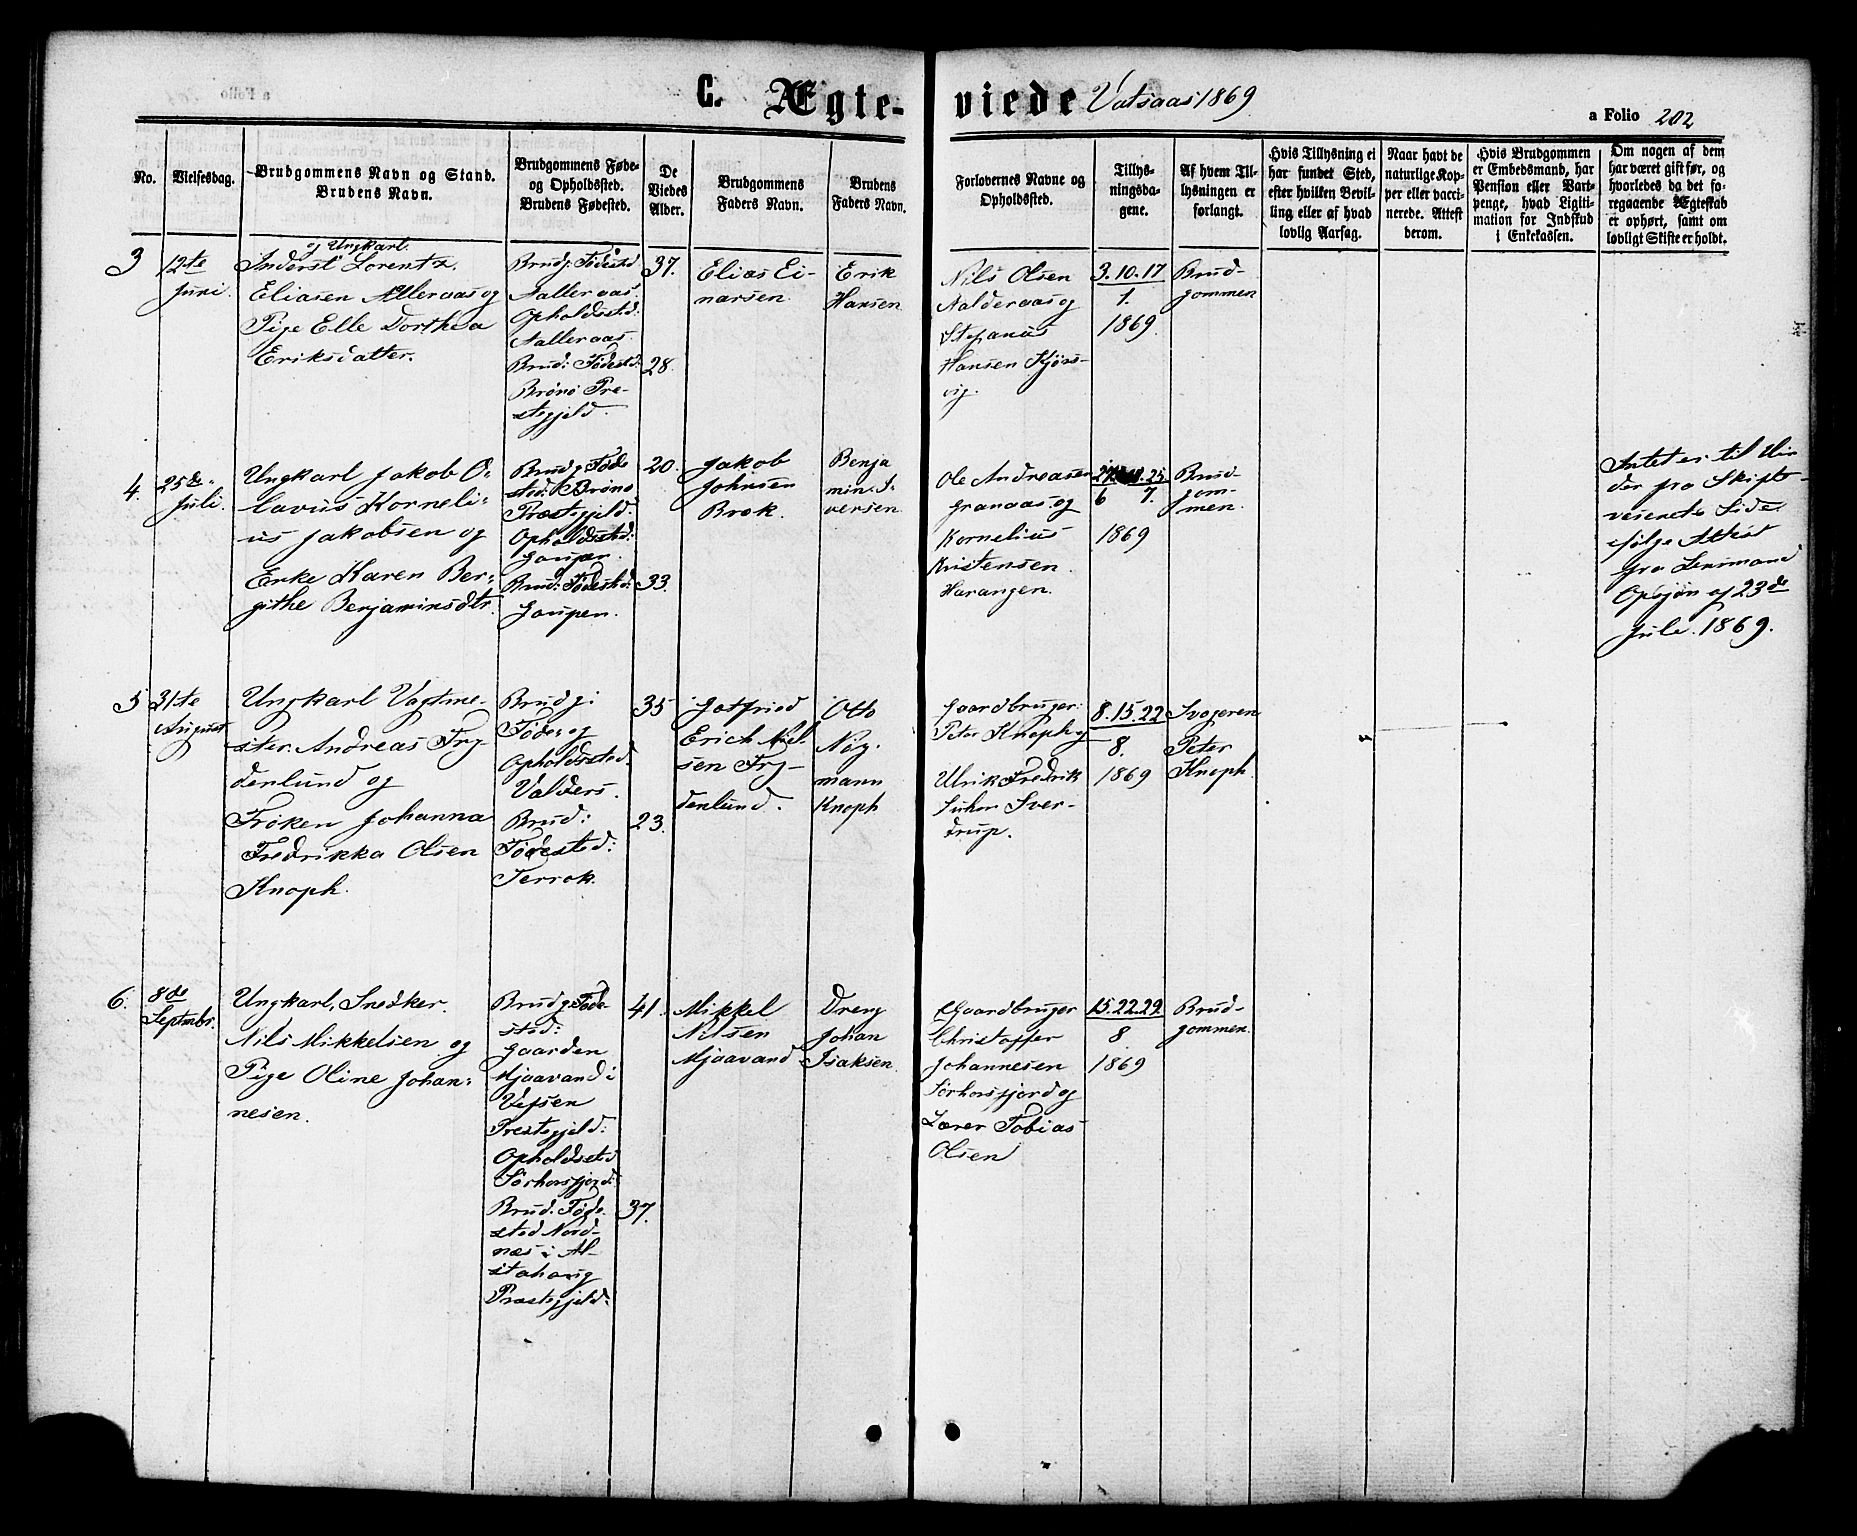 C. Ægte- viede Vatsaas 1869
a Folio 202
No.
Vielsesdag.
Brudgommens Navn og Stand.
Brudens Navn.
Brudgommens Føde-
og Opholdssted.
Brudens Fødested.
De
Viedes
Alder.
Brudgommens
Faders Navn.
Brudens
Faders Navn.
Forlovernes Navne og
Opholdssted.
Tillys-
ningsda-
gene.
Af hvem Til-
lysningen er
forlangt.
Hvis Tillysning ei
har fundet Sted,
efter hvilken Bevil-
ling eller af hvad
lovlig Aarsag.
Naar havt de
naturlige Kop-
per eller vacci-
nerede. Attest
derom.
Hvis Brudgommen
er Embedsmand, har
Pension eller Vart-
penge, hvad Ligiti-
mation for Indskud
i Enkekassen.
Om nogen af dem
har været gift før, og
hvorledes da det fo-
regaaende Ægteskab
er ophørt, samt om
lovligt Skifte er holdt.
3
12te
Juni.
og Ungkarl.
Anderst Lorentz.
Eliasen Alleraas og
Pige Elle Dorthea
Eriksdatter.
Brudg: Fødestd
Aalleraas.
Opholdsstd:
Aalleraas.
Brud: Fødestd:
Brønø Præ-
stegjeld.
37.
28.
Elias Ei-
narsen.
Erik
Hansen
Nils Olsen
Aalderaas og
Stefanus
Hansen Kjøns-
vig.
3. 10. 17
1.
1869
Brud-
gommen
4.
25de
Juli.
Ungkarl Jakob O-
lavus Korneli-
us Jakobsen og
Enke Karen Ber-
githe Benjaminsdtr.
Brudg Føde
sted: Brønø
Præstegjeld.
Opholdssted:
Gaupen.
Brud: Fødestd:
Gaupen.
20.
33.
Jakob
Johnsen
Brok.
Benja
min I-
versen
Ole Andreasen
Granaas og
Kornelius
Kristensen
Harangen.
25
6 7.
1869
Brud-
gom-
men.
Intet er til Hin
der fra Skifte-
vesenets Side
ifølge Attest
fra Lensmand
Opsjøn af 23de
Juli. 1869.
5
31te
August
Ungkarl Vagtme-
ster. Andreas Fry-
denlund og
Frøken Johanna
Fredrikka Olsen
Knoph.
Brudg:
Føde og
Opholdssted
Valders.
Brud:
Fødested:
Terrok.
35
23.
Gotfried
Erich Niel-
sen Fry-
denlund.
Otto
Nøg-
mann
Knoph
Gaardbruger
Peter Knoph og
Ulrik Fredrik
Suhm Sver-
drup.
8. 15. 22
8.
1869
Svogeren
Peter
Knoph.
6.
8de
Septmbr.
Ungkarl, Snedker.
Nils Mikkelsen og
Pige Oline Johan-
nesen.
Brudg: Føde
sted:
Gaarden
Mjaavand i
Vefsen
Prestegjeld:
Opholdssted
Sørhorsfjord:
Brud. Føde-
sted Nord-
næs i Al-
stahoug
Præstegjeld:
41.
37.
Mikkel
Nilsen
Mjaavand
Dreng
Johan
Isaksen.
Gaardbruger
Christoffer
Johannesen
Sørhorsfjord og
Lærer Tobias
Olsen
15. 22. 29.
8
1869
Brud-
gommen.